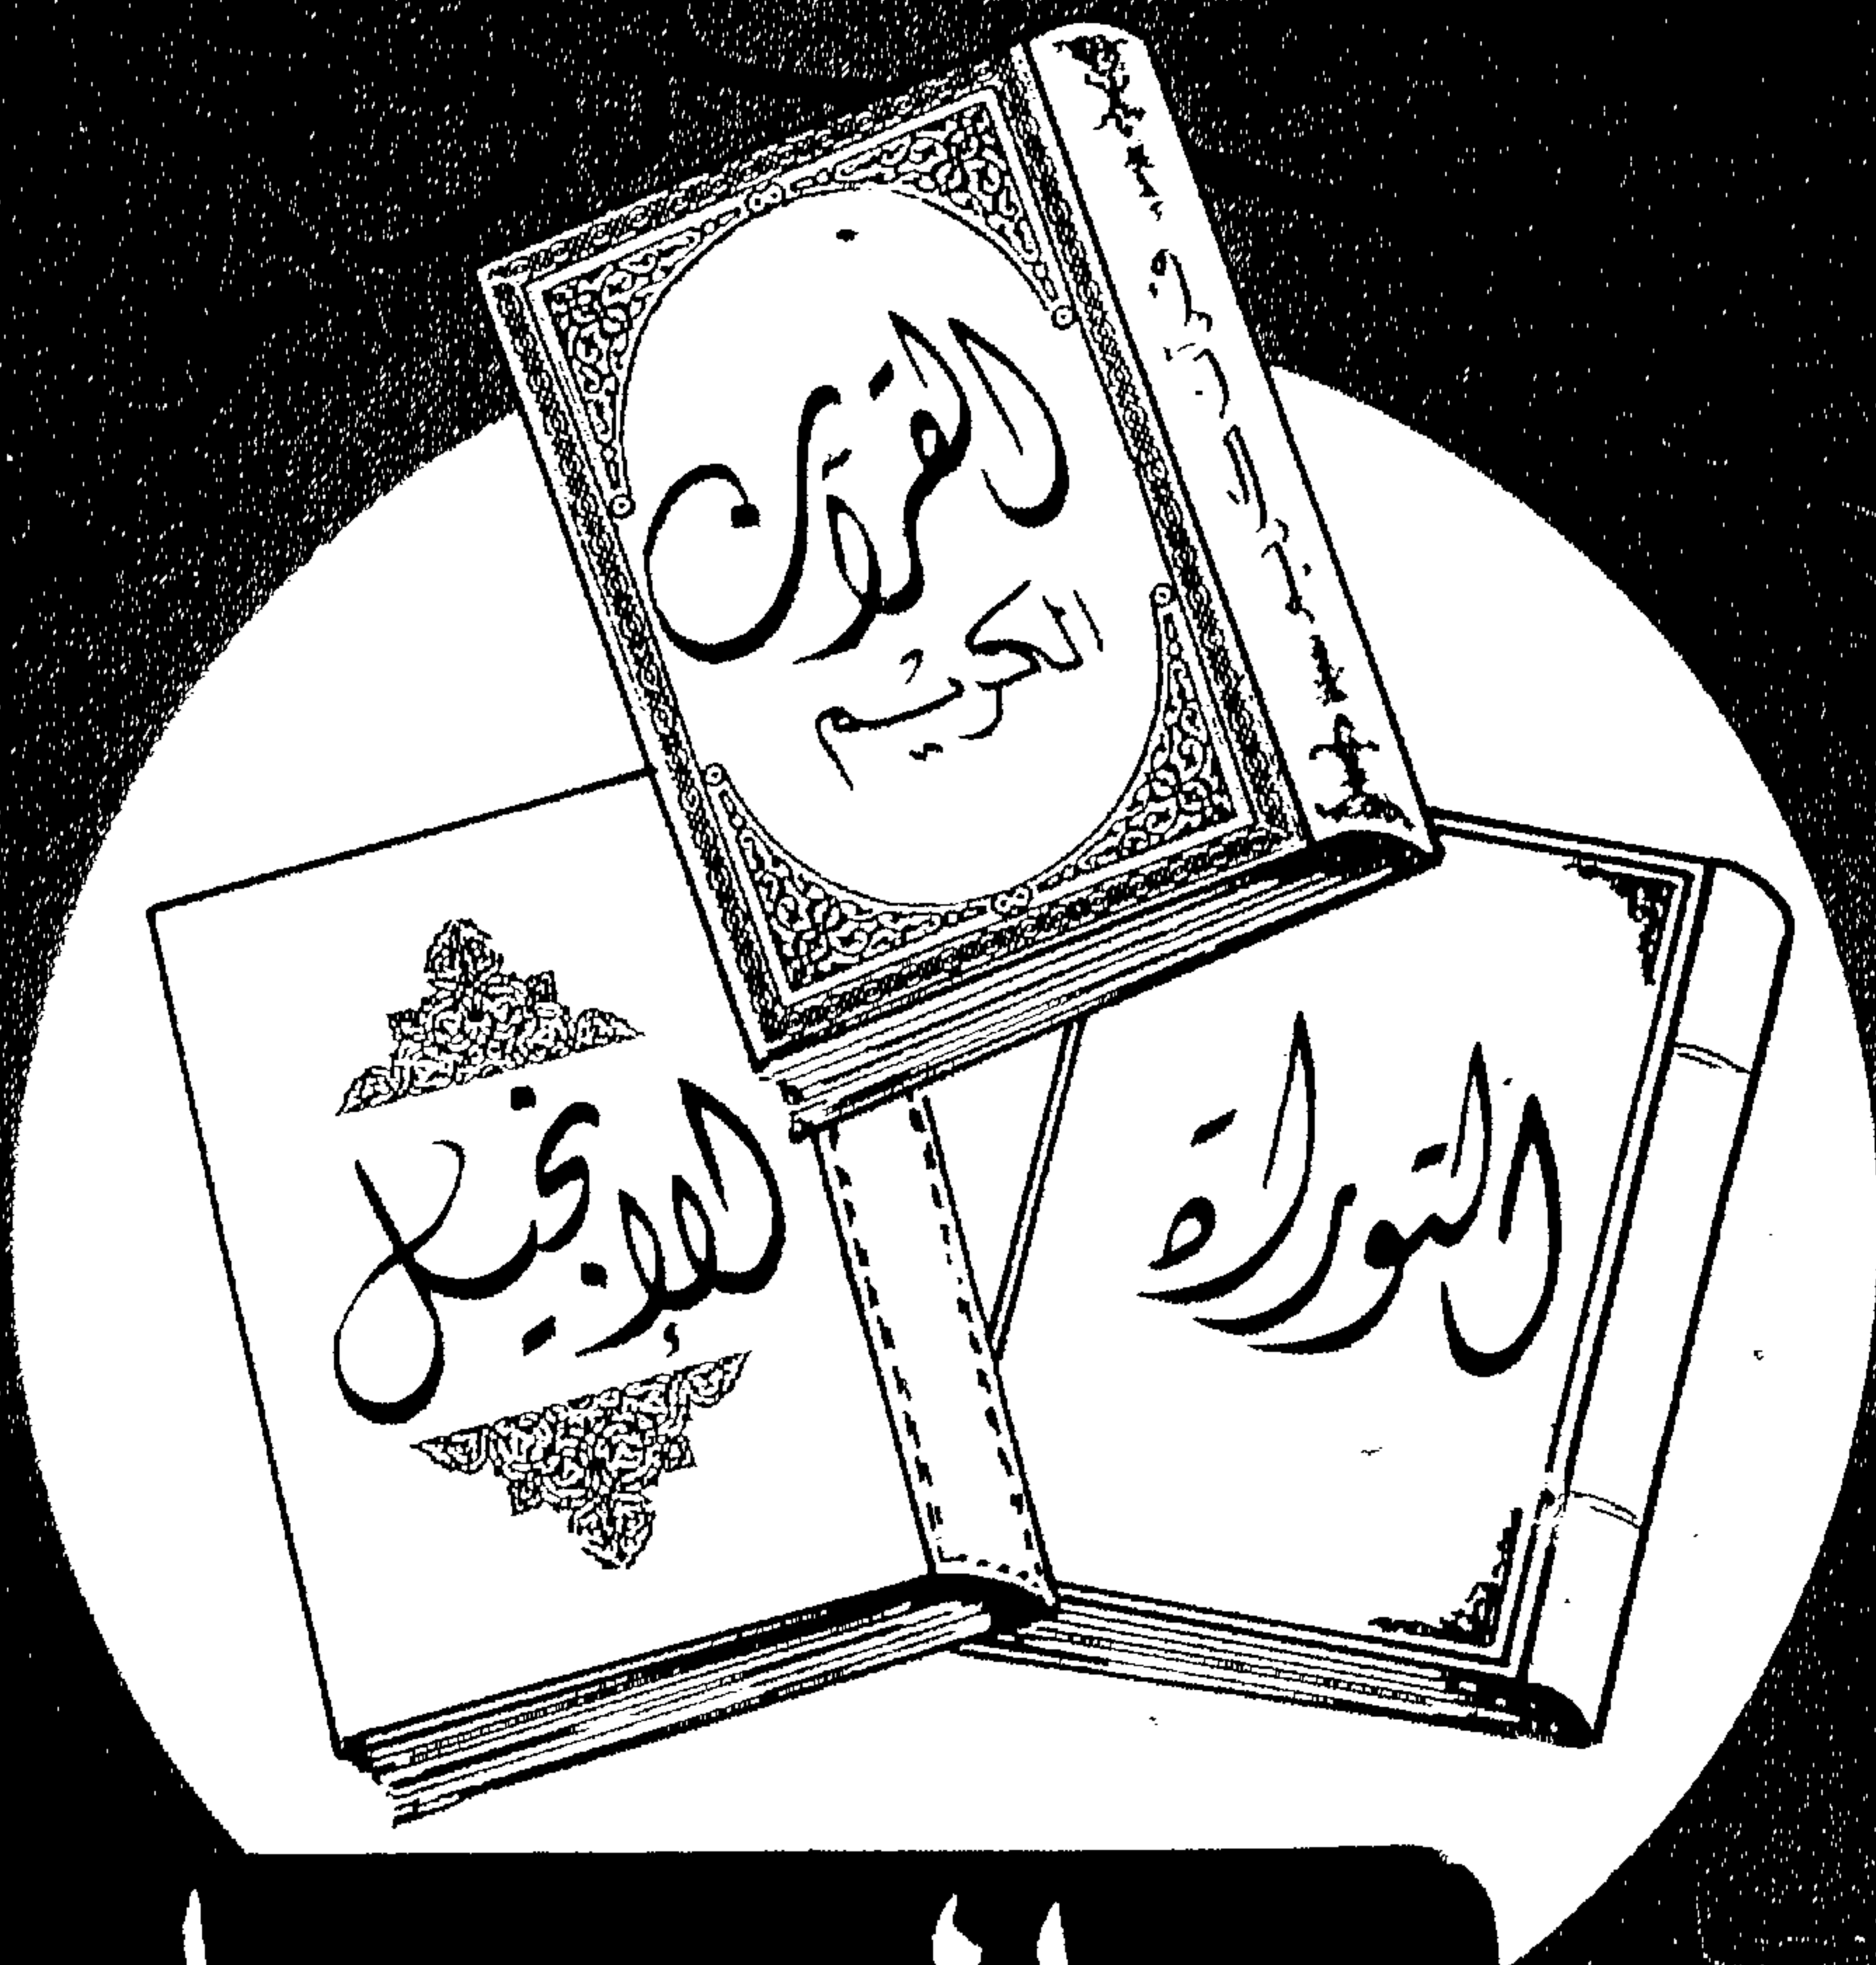 القرآن
الكريم
الإنجيل
التوراة